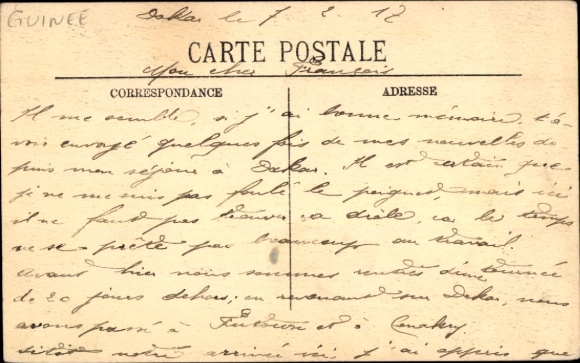 GUINÉE
Dakar le 7 2 12
CARTE POSTALE
Mon cher François
CORRESPONDANCE
ADRESSE
Il me semble, si j'ai bonne mémoire, t'a-
voir envoyé quelques fois de mes nouvelles de-
puis mon séjour à Dakar. Il est certain que
je ne me suis pas foulé le poignet, mais ici
il ne faut pas trouver ça drôle, car le temps
ne se prête pas beaucoup au travail.
Avant hier nous sommes rentrés d'une tournée
de 20 jours dehors; en revenant sur Dakar, nous
avons passé à et à Conakry.
sitôt notre arrivée ici, j'ai appris que